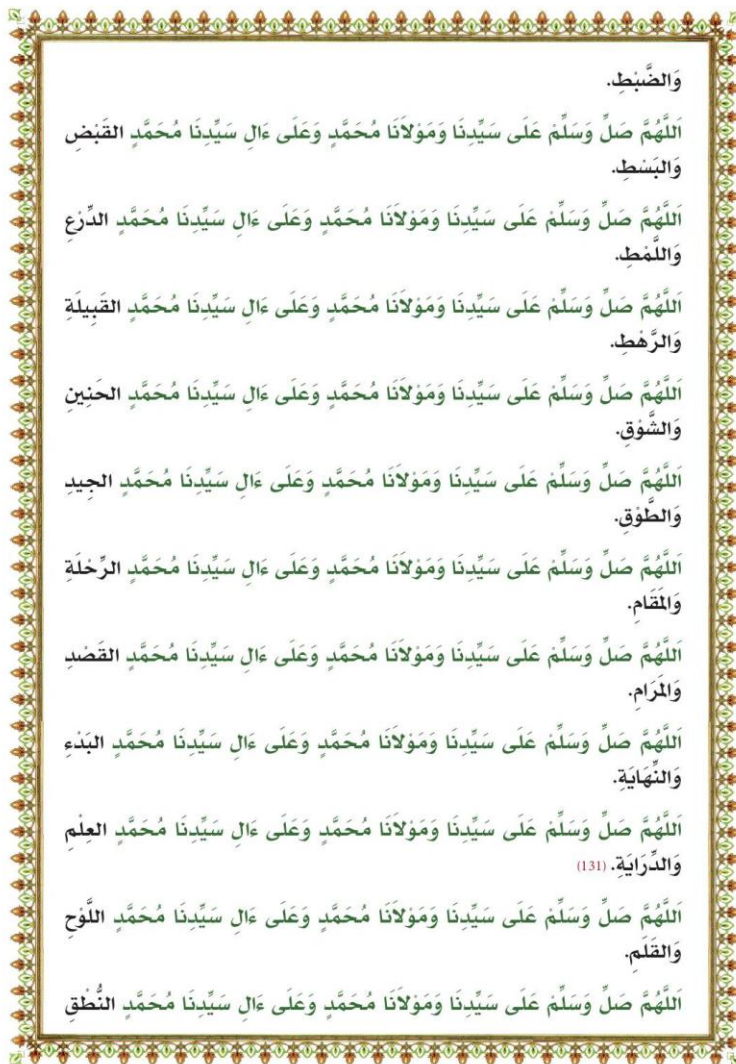 وَالضَّبْطِ.
اَللَّهُمَّ صَلِّ وَسَلِّمْ عَلَى سَيِّدِنَا وَمَوْلَانَا مُحَمَّدٍ وَعَلَى ءَالِ سَيِّدِنَا مُحَمَّدٍ القَبْضِ
وَالبَسْطِ.
اَللَّهُمَّ صَلِّ وَسَلِّمْ عَلَى سَيِّدِنَا وَمَوْلَانَا مُحَمَّدٍ وَعَلَى ءَالِ سَيِّدِنَا مُحَمَّدٍ الدِّرْعِ
وَاللَّمْطِ.
اَللَّهُمَّ صَلِّ وَسَلِّمْ عَلَى سَيِّدِنَا وَمَوْلَانَا مُحَمَّدٍ وَعَلَى ءَالِ سَيِّدِنَا مُحَمَّدٍ القَبِيلَةِ
وَالرَّهْطِ.
اَللَّهُمَّ صَلِّ وَسَلِّمْ عَلَى سَيِّدِنَا وَمَوْلَانَا مُحَمَّدٍ وَعَلَى ءَالِ سَيِّدِنَا مُحَمَّدٍ الحَنِينِ
وَالشَّوْقِ.
اَللَّهُمَّ صَلِّ وَسَلِّمْ عَلَى سَيِّدِنَا وَمَوْلَانَا مُحَمَّدٍ وَعَلَى ءَالِ سَيِّدِنَا مُحَمَّدٍ الجِيدِ
وَالطَّوْقِ.
اَللَّهُمَّ صَلِّ وَسَلِّمْ عَلَى سَيِّدِنَا وَمَوْلَانَا مُحَمَّدٍ وَعَلَى ءَالِ سَيِّدِنَا مُحَمَّدٍ الرِّحْلَةِ
وَالمَقَامِ.
اَللَّهُمَّ صَلِّ وَسَلِّمْ عَلَى سَيِّدِنَا وَمَوْلَانَا مُحَمَّدٍ وَعَلَى ءَالِ سَيِّدِنَا مُحَمَّدٍ القَصْدِ
وَالمَرَامِ.
اَللَّهُمَّ صَلِّ وَسَلِّمْ عَلَى سَيِّدِنَا وَمَوْلَانَا مُحَمَّدٍ وَعَلَى ءَالِ سَيِّدِنَا مُحَمَّدٍ البَدْءِ
وَالنِّهَايَةِ.
اَللَّهُمَّ صَلِّ وَسَلِّمْ عَلَى سَيِّدِنَا وَمَوْلَانَا مُحَمَّدٍ وَعَلَى ءَالِ سَيِّدِنَا مُحَمَّدٍ العِلْمِ
وَالدِّرَايَةِ. (131)
اَللَّهُمَّ صَلِّ وَسَلِّمْ عَلَى سَيِّدِنَا وَمَوْلَانَا مُحَمَّدٍ وَعَلَى ءَالِ سَيِّدِنَا مُحَمَّدٍ اللَّوْحِ
وَالقَلَمِ.
اَللَّهُمَّ صَلِّ وَسَلِّمْ عَلَى سَيِّدِنَا وَمَوْلَانَا مُحَمَّدٍ وَعَلَى ءَالِ سَيِّدِنَا مُحَمَّدٍ النُّطْقِ